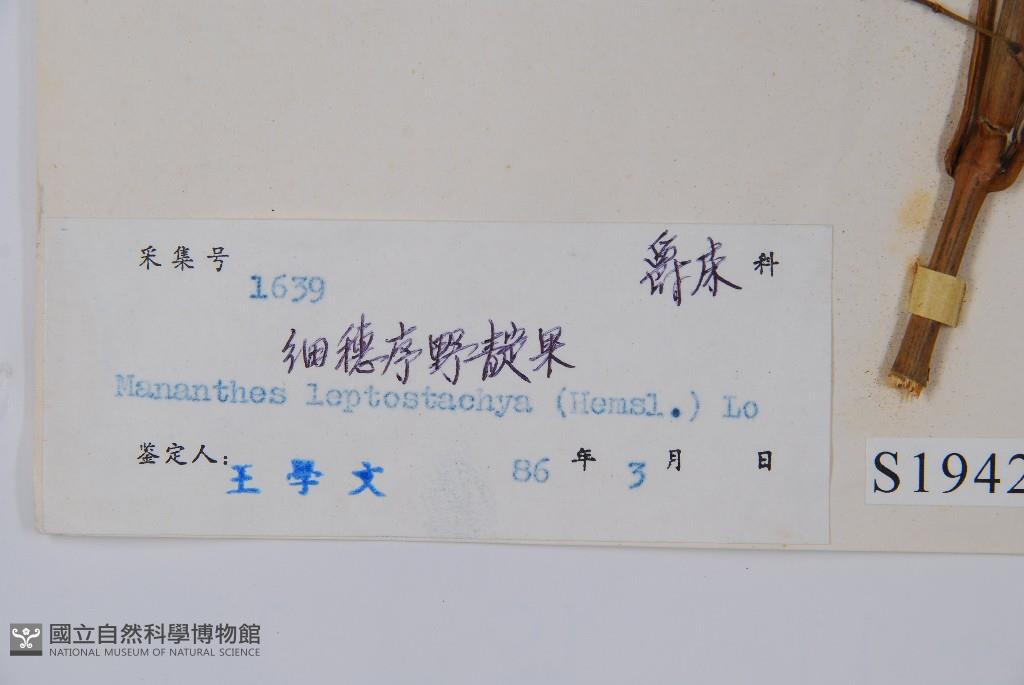 采集号 爵床 科
1639
细穗序野靛果
Mananthes leptostachya (Hemsl.) Lo
鉴定人: 王學文 86 年 3 月 日
S1942
國立自然科學博物館
NATIONAL MUSEUM OF NATURAL SCIENCE